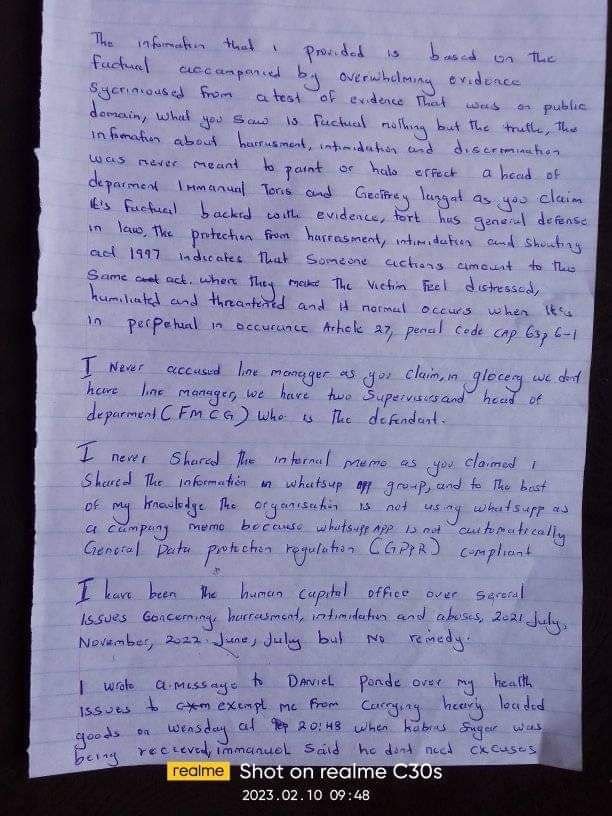 The infomation that i provided is based on the
factual accompanied by overwhelming evidence
Sycrinioused from a test of evidence that was on public
domain, what you saw is factual nothing but the truth, The
infomation about harrusment, intimidation and discrimination
was never meant to paint or halo effect a head of
deparment Immanual Toris and Geoffrey langat as you claim
It's factual backed with evidence, tort has general defense
in law, The protection from harrasment, intimidation and Shouting
act 1997 indicates That Someone actions amount to the
Same act. where they make The victim feel distressed,
humiliated and threantened and it normal occurs when it's
in perpetual in occurance Article 27, penal code CAP 63, 6-1
I Never accused line manager as you claim, in glocery we dont
have line manager, we have two Supervisors and head of
deparment (FMCG) who is The defendant.
I never Shared the internal memo as you claimed i
Shared The information in whatsup app group, and to the best
of my knowledge The organisation is not using whatsupp as
a campany memo because whatsupp App is not automatically
General Data protection regulation (GDPR) compliant
I have been The human capital office over several
Issues Concerning, harrasment, intimidation and abuses, 2021 July,
November, 2022. June, July but No remedy.
I wrote a message to DANIEL Ponde over my health
Issues to exempt me from Carrying heavy loaded
goods on wensday at 20:48 when kabras Sugar was
being recieved, immanuel Said he dont need excuses
realme Shot on realme C30s
2023.02.10 09:48